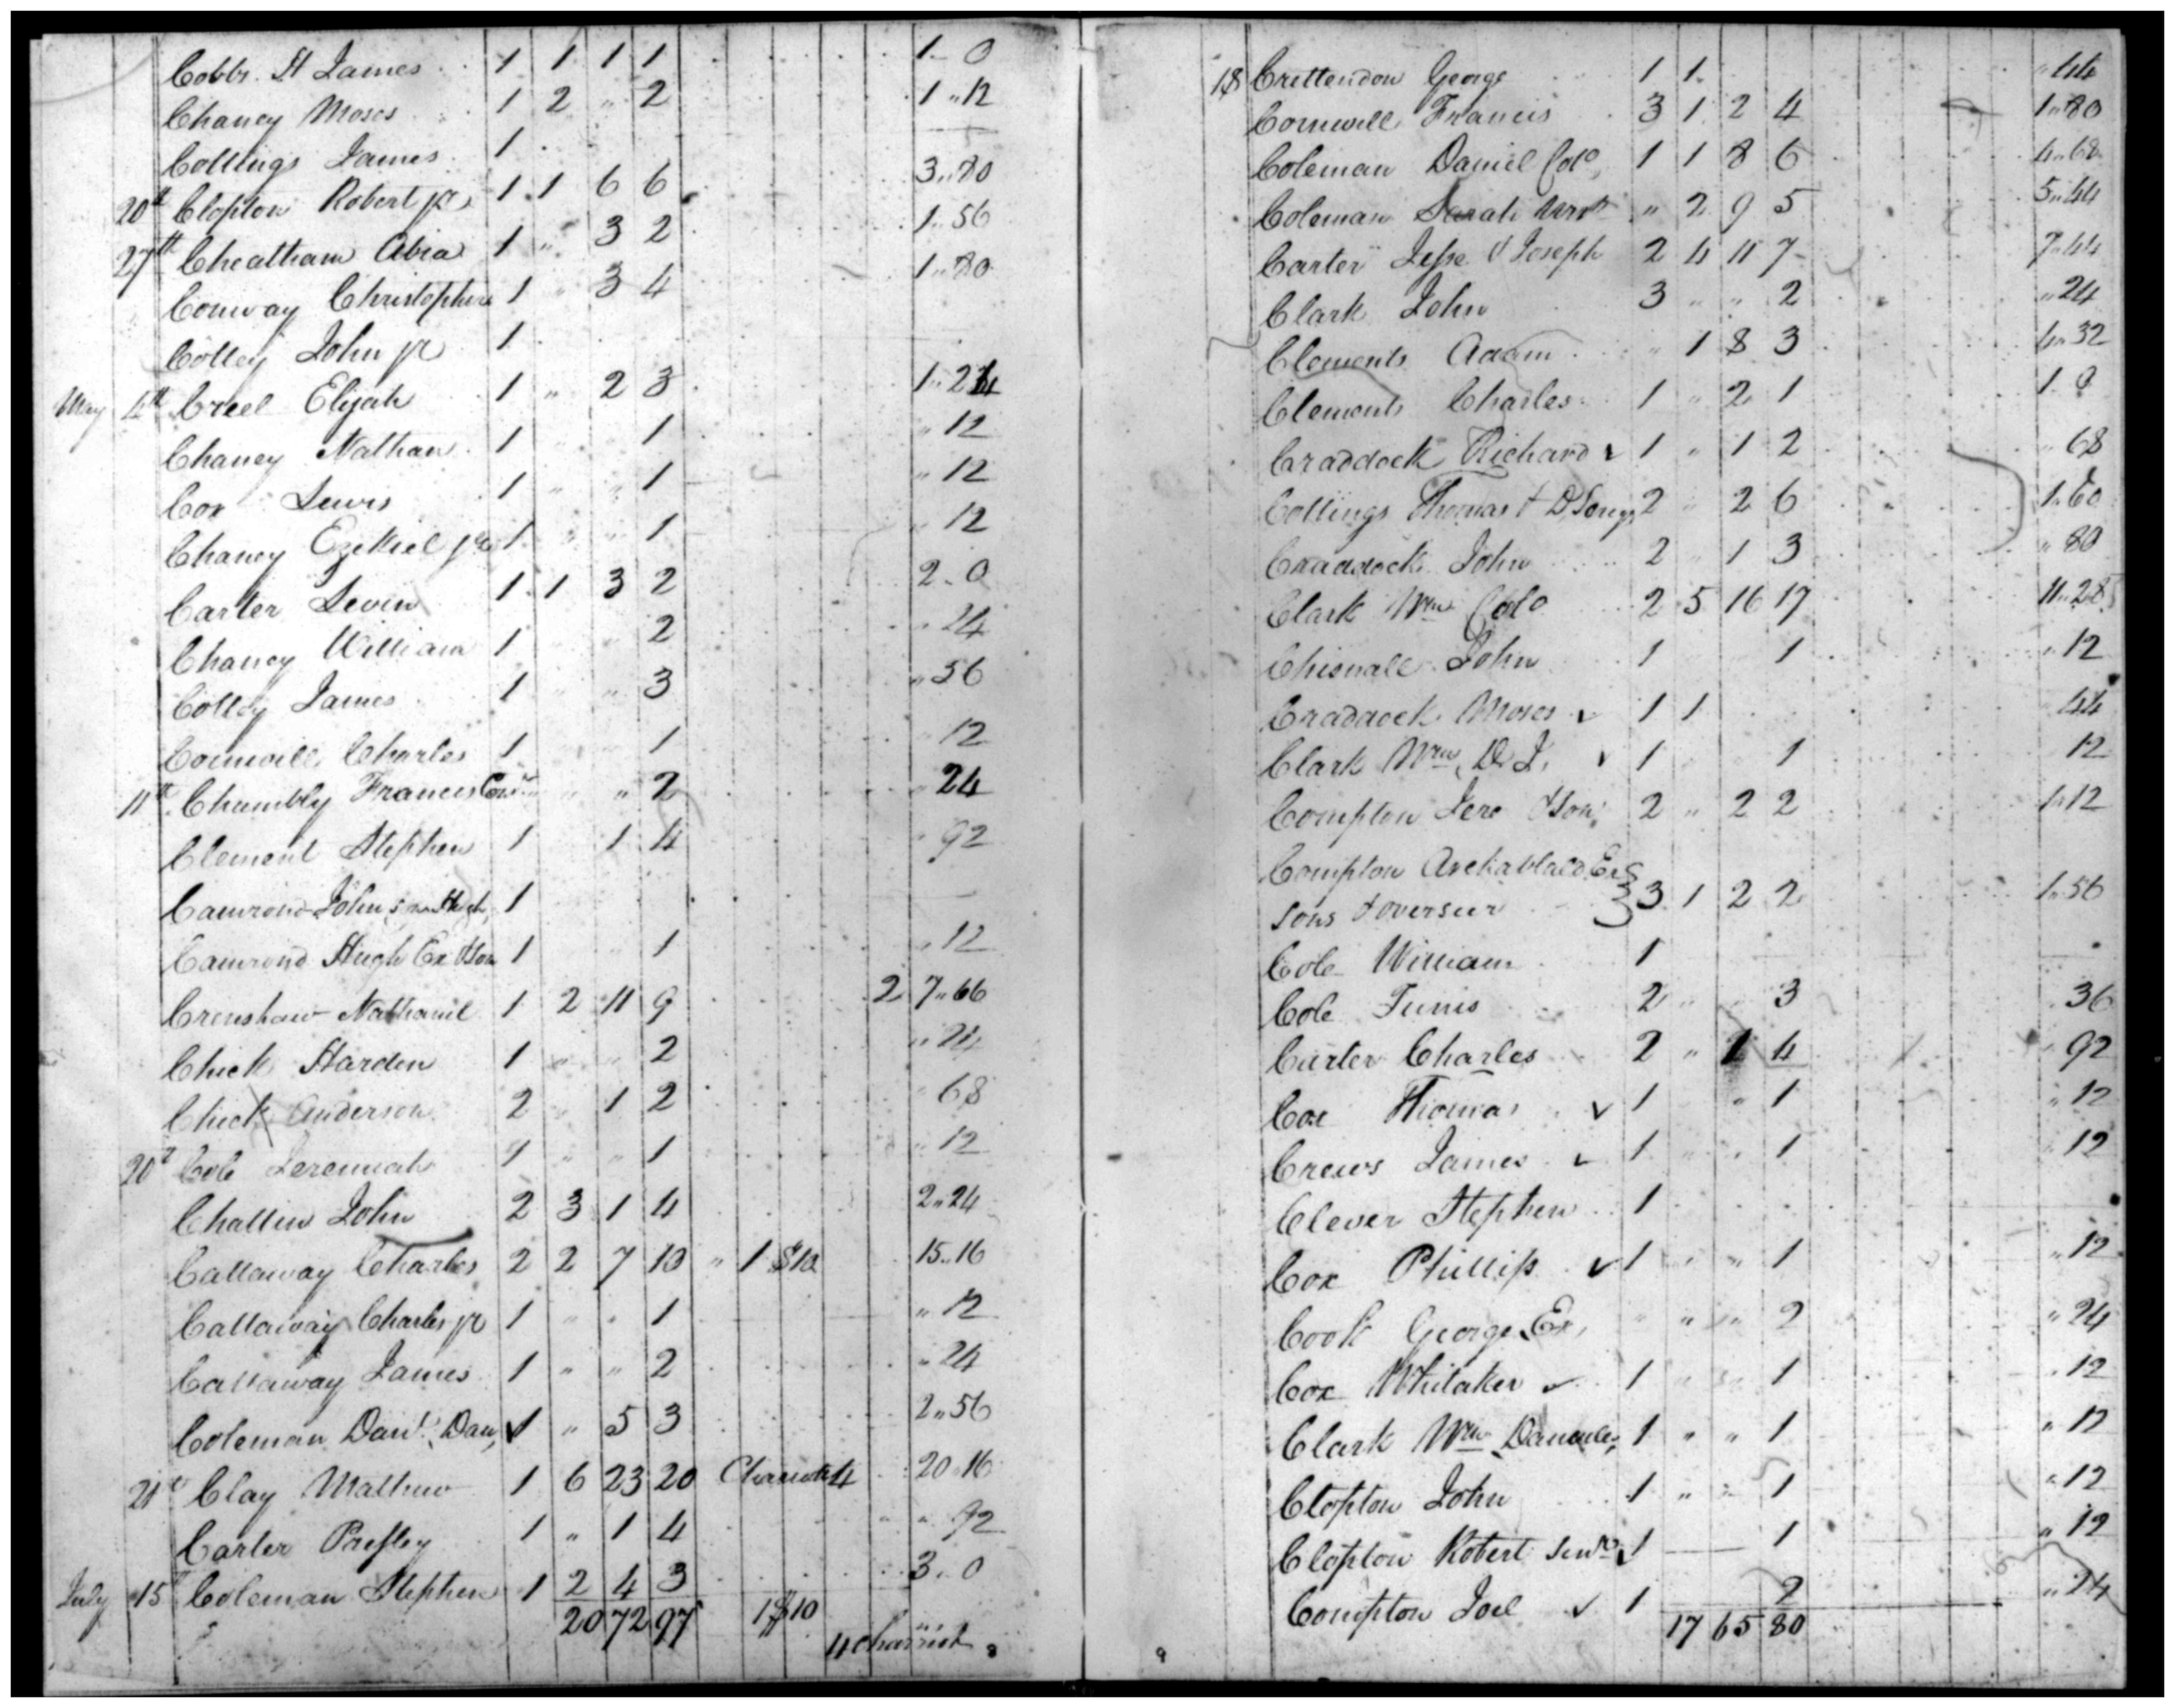 Cobbs H James 1 1 1 1 1 .. 0
Chaney Moses 1 2 " 2 1 .. 12
Collings James 1
20th Clopton Robert jr 1 1 6 6 3 .. 80
27th Cheatham Abia 1 " 3 2 1 .. 56
Conway Christopher 1 " 3 4 1 .. 80
Colley John jr 1
May 4th Creel Elijah 1 " 2 3 1 .. 24
Chaney Nathan 1 " " 1 " 12
Cox Lewis 1 " " 1 " 12
Chaney Ezekiel jr 1 " " 1 " 12
Carter Levin 1 1 3 2 2 .. 0
Chaney William 1 " " 2 " 24
Colley James 1 " " 3 " 36
Cornwill Charles 1 1 " 12
11th Chumbly Francis Con " " " 2 " 24
Clement Stephen 1 1 4 " 92
Camrond John son Hugh 1
Camrond Hugh Ex & Son 1 " 1 " 12
Crenshaw Nathaniel 1 2 11 9 2 7 .. 66
Chick Harden 1 " " 2 " 24
Chick Anderson 2 " 1 2 " 68
20th Cole Jeremiah 1 " " 1 " 12
Challin John 2 3 1 4 2 .. 24
Callaway Charles 2 2 7 10 " 1 $10 15 .. 16
Callaway Charles jr 1 " " 1 " 12
Callaway James 1 " " 2 " 24
Coleman Danl. Dan, ✓ 1 " 5 3 2 .. 56
21st Clay Mathew 1 6 23 20 Charriot 4 20 .. 16
Carter Presley 1 " 1 4 " 92
July 15th Coleman Stephen 1 2 4 3 3 .. 0
20 72 97 1 $10
4 Charriot
18 Crettendon George 1 1 " 44
Cornwell Francis 3 1 2 4 1 .. 80
Coleman Daniel Colo 1 1 8 6 4 .. 68
Coleman Sarah " 2 9 5 5 .. 44
Carter Jesse & Joseph 2 4 11 7 7 .. 44
Clark John 3 " " 2 " 24
Clements Adam " 1 8 3 4 .. 32
Clements Charles 1 " 2 1 1 .. 0
Craddock Richard ✓ 1 " 1 2 " 68
Collings Thomas & 2 " 2 6 1 .. 60
Craddock John 2 " 1 3 " 80
Clark Wm Colo 2 5 16 17 11 .. 28
Chisnall John 1 1 " 12
Craddock Moses ✓ 1 1 " 44
Clark Wm D. J. ✓ 1 1 12
Compton Jere & Son 2 " 2 2 1 .. 12
Compton Archabald Ex
sons & overseer 3 1 2 2 1 .. 56
Cole William 1
Cole Tunis 2 " 3 36
Carter Charles 2 " 1 4 " 92
Cox Thomas ✓ 1 " 1 " 12
Crews James ✓ 1 " " 1 " 12
Clever Stephen 1
Cox Phillip ✓ 1 " " 1 " 12
Cook George Ex, " " " 2 " 24
Cox Whitaker ✓ 1 " " 1 " 12
Clark Wm 1 " " 1 " 12
Clopton John 1 " " 1 " 12
Clopton Robert Senr ✓ 1 1 " 12
Compton Joel ✓ 1 2 " 24
17 65 80